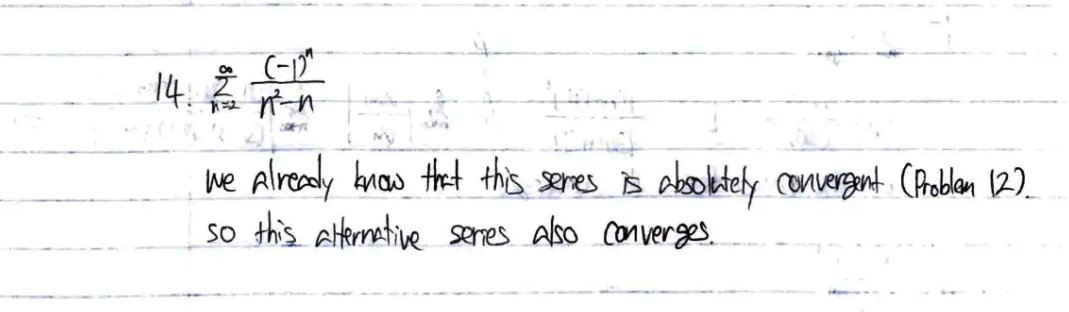 14. ∞ Σ n=2 (-1)^n / n²-n
we already know that this series is absolutely convergent (Problem 12).
so this alternative series also converges.